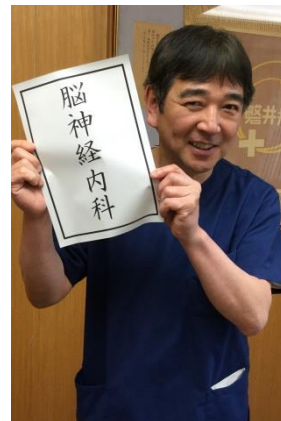 脳神経内科
磐井